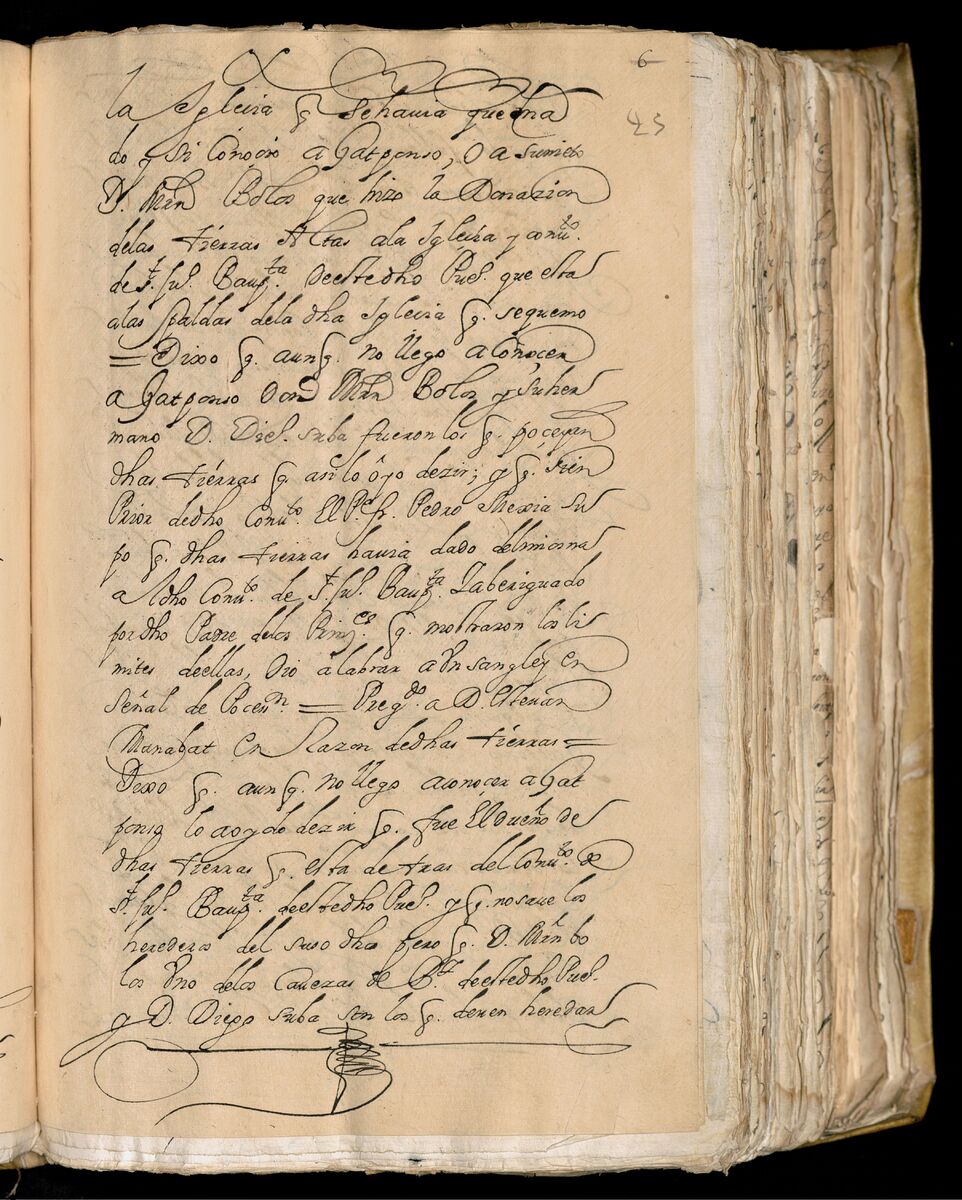 6
45
la Iglecia q̃ sehauia quema
do y si Conocio a Gatponso, o a su nieto
D. Mĩn Bolos que hizo la Donazion
delas tierras Altas ala Iglecia y conu.to
de S.t Ju.º Baup.ta deestedho Pue.º que esta
alas spaldas dela dha Iglecia q̃. sequemo
= Dixo q̃. aunq̃. no llego aConocer
a Gatponso Don Mĩn Bolos y su her
mano D. Die.º suba fueron los q̃. poceyan
dhas tierras q̃. asi lo oyo dezir; y q̃. sien
Prior dedho Conu.to El P.e f. Pedro Mexia su
po q̃. dhas tierras hauia dado delimosna
a ldho Conu.to de S.t Ju.º Baup.ta Iaberiguado
por dho Padre delos Prin.es q̃. mostraron los li
mites deellas, dio alabrar a Vn sangley en
señal de Poces.n = Preg.do a D. Esteuan
Manabat en Razon dedhas tierras =
Dixo q̃. aunq̃. no llego aconocer a Gat
ponso lo a oydo dezir q̃. fue El dueño de
dhas tierras q̃. esta de tras del Conu.to de
S.t Ju.º Baup.ta deestedho Pue.º y q̃. no saue los
herederos del suso dho pero q̃. D. Mĩn bo
los Vno delos Cauezas de B.y deestedho Pue.º
y D. Diego suba son los q̃. deuen heredar